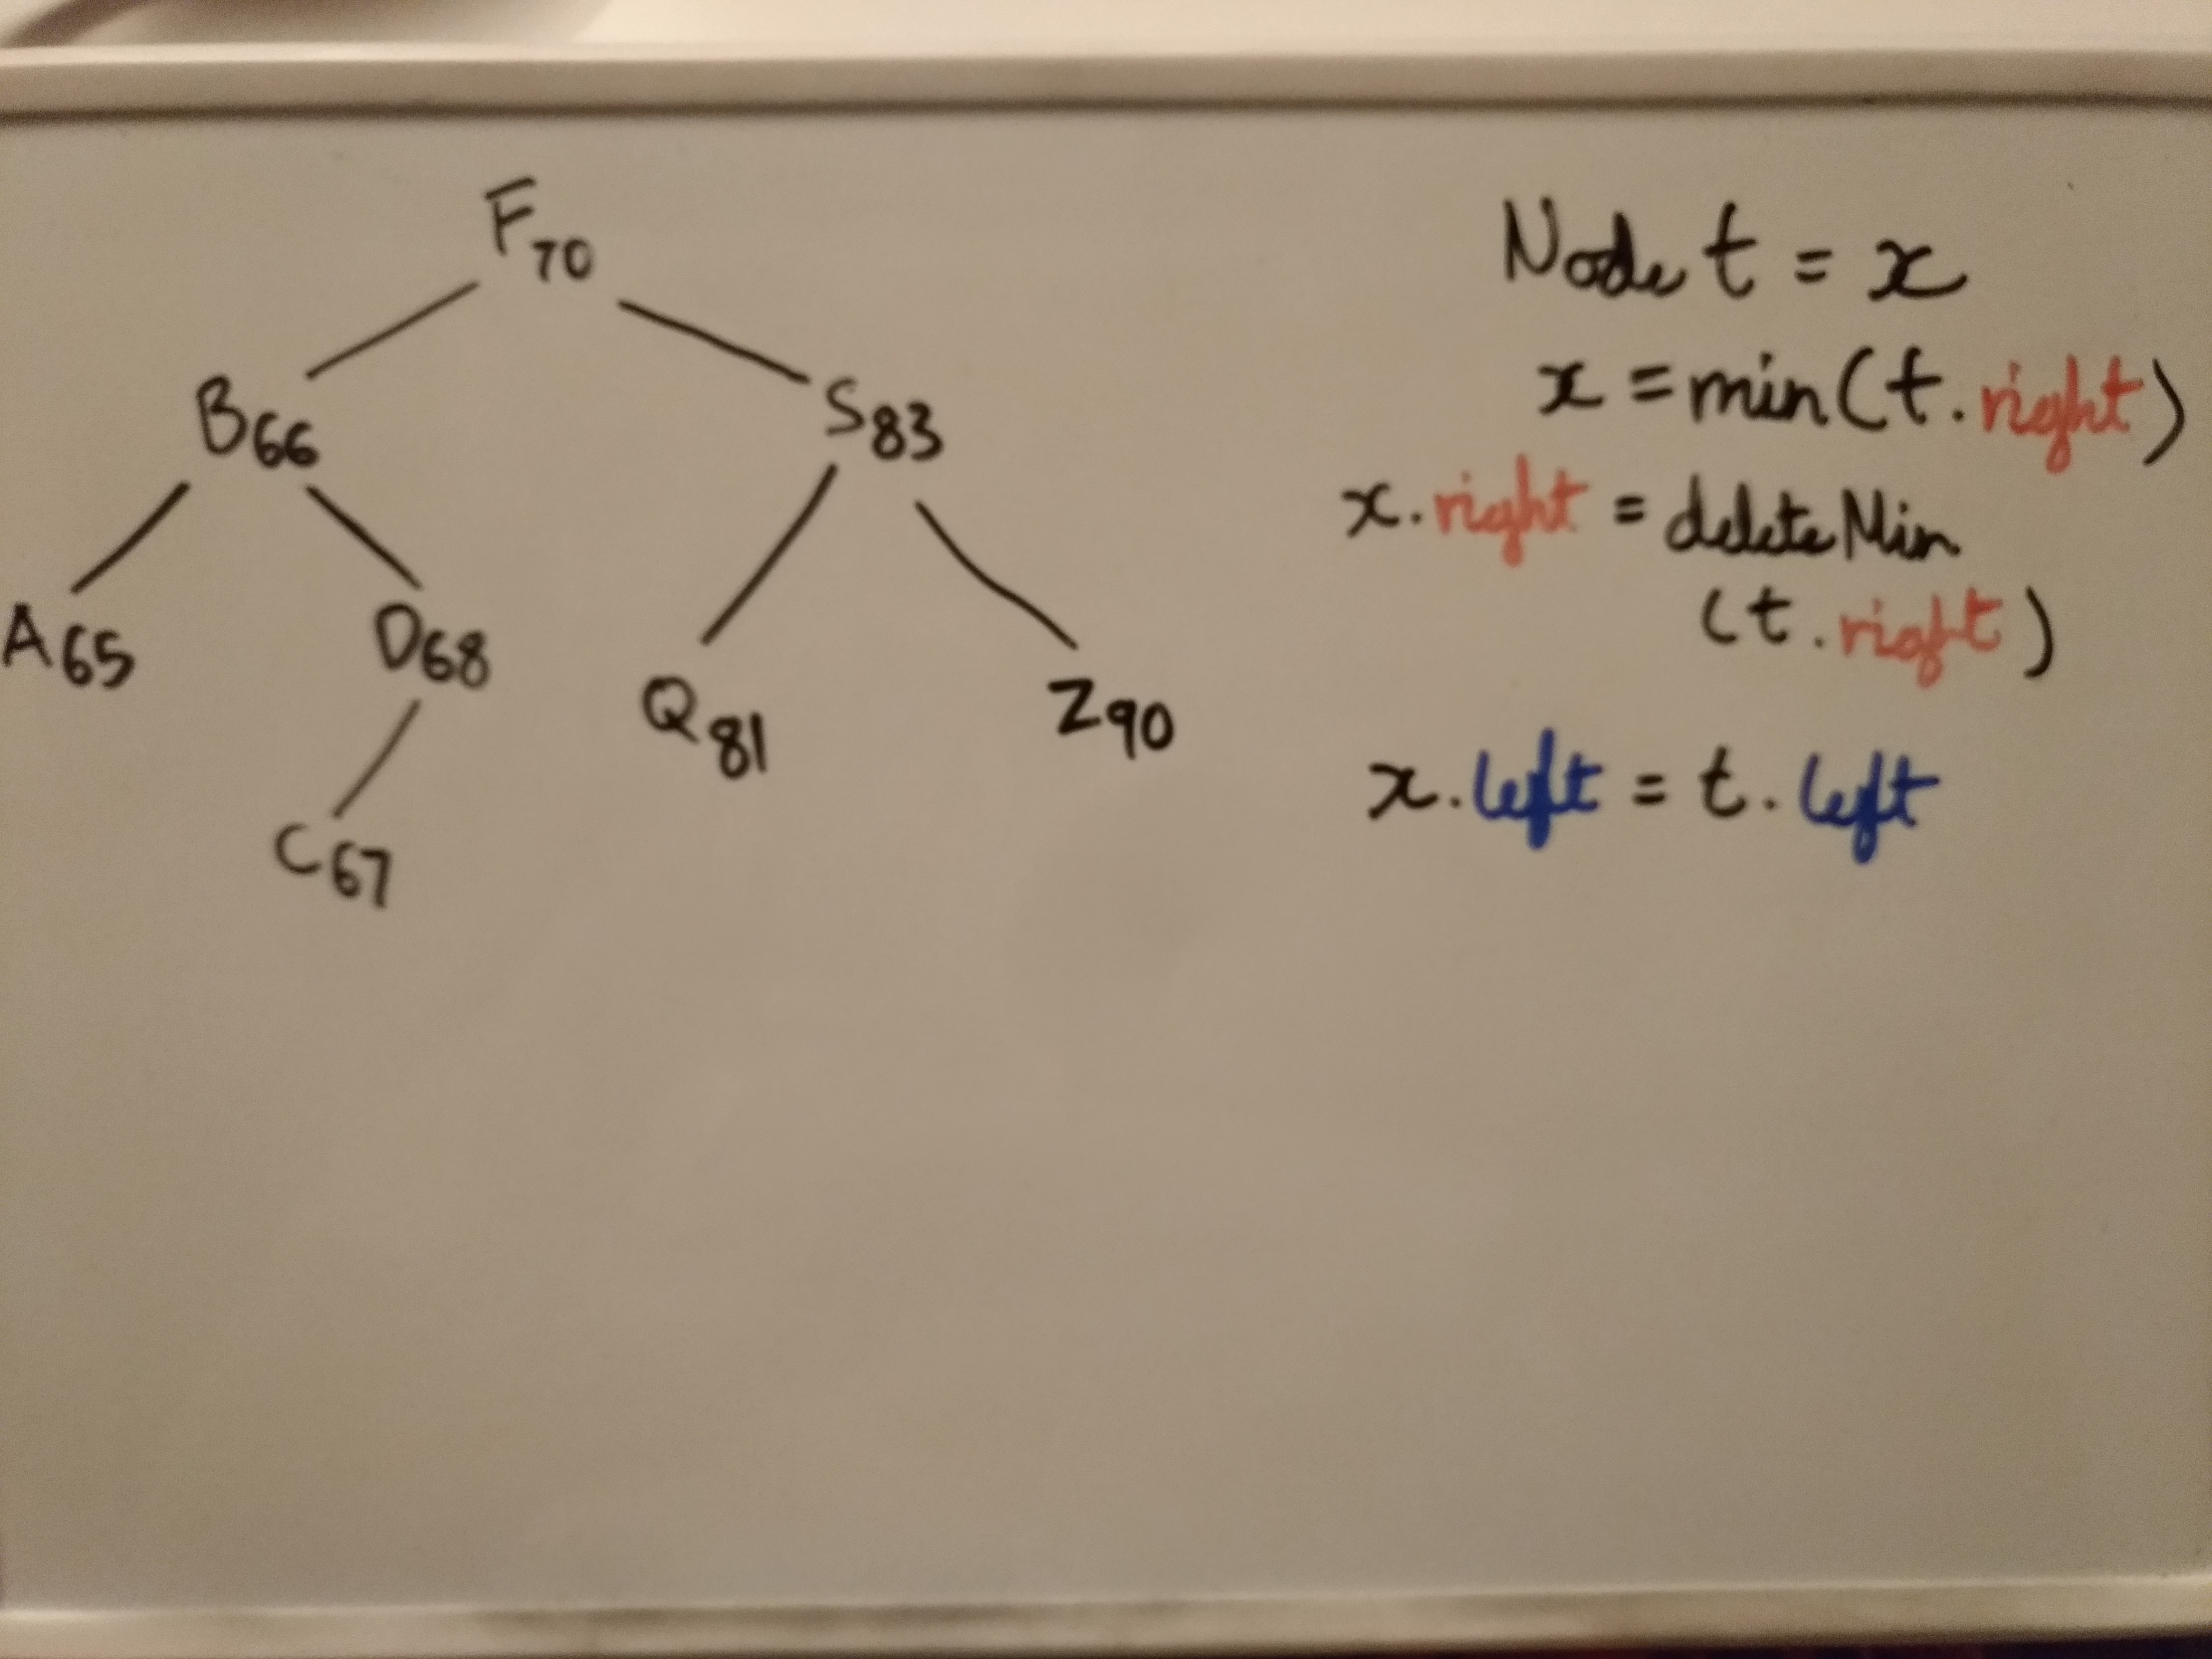 F70
B66 S83
A65 D68 Q81 Z90
C67
Node t = x
x = min(t.right)
x.right = deleteMin
(t.right)
x.left = t.left